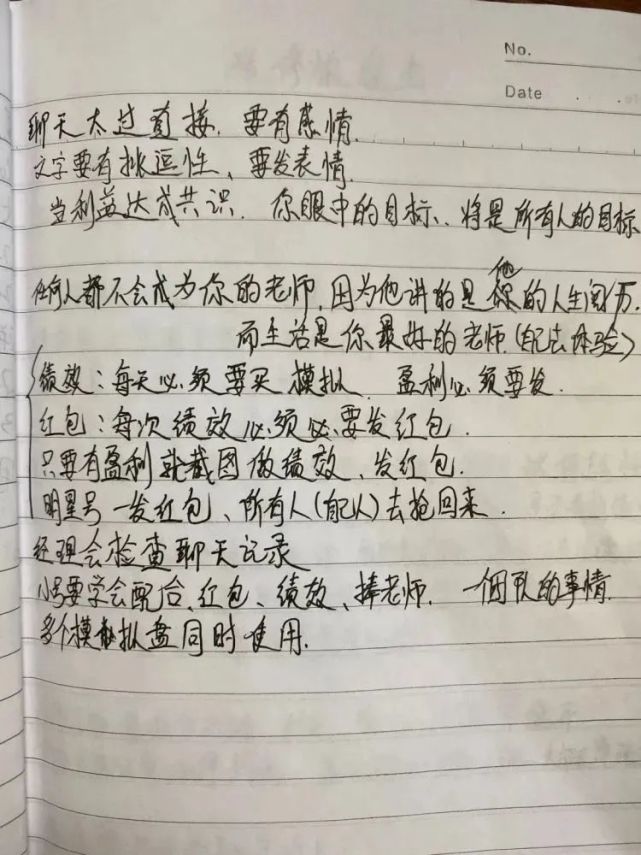 No.
Date
聊天太过直接. 要有感情.
文字要有挑逗性、要发表情.
当利益达成共识. 你眼中的目标、将是所有人的目标
任何人都不会成为你的老师. 因为他讲的是他的人生阅历.
而生活是你最好的老师.(自己去体验)
绩效：每天必须要买模拟. 盈利必须要发.
红包：每次绩效必须必要发红包.
只要有盈利就截图做绩效、发红包.
明星号一发红包、所有人(自己人)去抢回来.
经理会检查聊天记录
小号要学会配合、红包、绩效、捧老师. 一个团队的事情.
多个模拟盘同时使用.